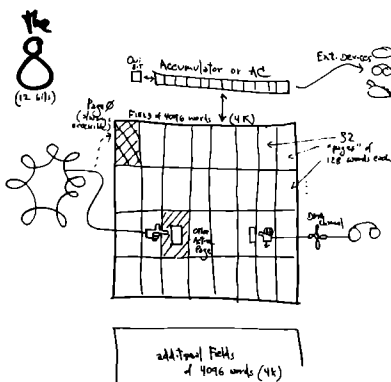 the
8
(12 bits)
Accumulator or AC
Ext. Devices
Page Ø
(always
accessible)
Field of 4096 words (4K)
32
"pages" of
128 words each
Other
Active
Page
DMA
channel
additional fields
of 4096 words (4K)